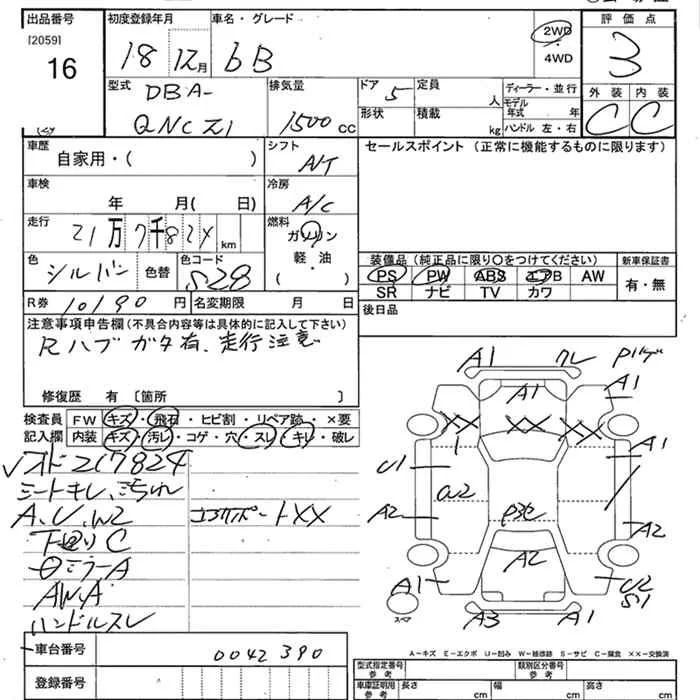 出品番号 初度登録年月 車名・グレード 評価点
[2059]
16
18 12月 bB 2WD・4WD 3
型式 DBA-QNCZ1
排気量 1500CC
ドア 5
定員 人
形状
積載 kg
ディーラー・並行
モデル年式 年
ハンドル 左・右
外装 C 内装 C
車歴 自家用・( )
シフト A/T
セールスポイント(正常に機能するものに限ります)
車検 年 月( 日)
冷房 A/C
走行 21万7千82X km
燃料 ガソリン・軽油・( )
色 シルバー 色替 色コード S28
装備品(純正品に限り〇をつけてください) 新車保証書
PS PW ABS エアB AW 有・無
SR ナビ TV カワ
R券 10190円 名変期限 月 日
後日品
注意事項申告欄(不具合内容等は具体的に記入して下さい)
Rハブガタ有、走行注意
修復歴 有 〔箇所 〕
検査員記入欄
FW キズ・飛石・ヒビ割・リペア跡・×要
内装 キズ・汚レ・コゲ・穴・スレ・キレ・破レ
217824
シートキレ、
A、U、W2 XX
下廻りC
ミラーA
AW、A
ハンドルスレ
A1 A1 A1
XX XX XX
U1 A1
A2 A2
A2
A1 U2 S1
スペア A3 A1
A-キズ E-エクボ U-凹み W-補修跡 S-サビ C-腐食 ××-交換済
車台番号 0042390
登録番号
型式指定番号 参考 類別区分番号 参考
車庫証明用 参考 長さ cm 幅 cm 高さ cm